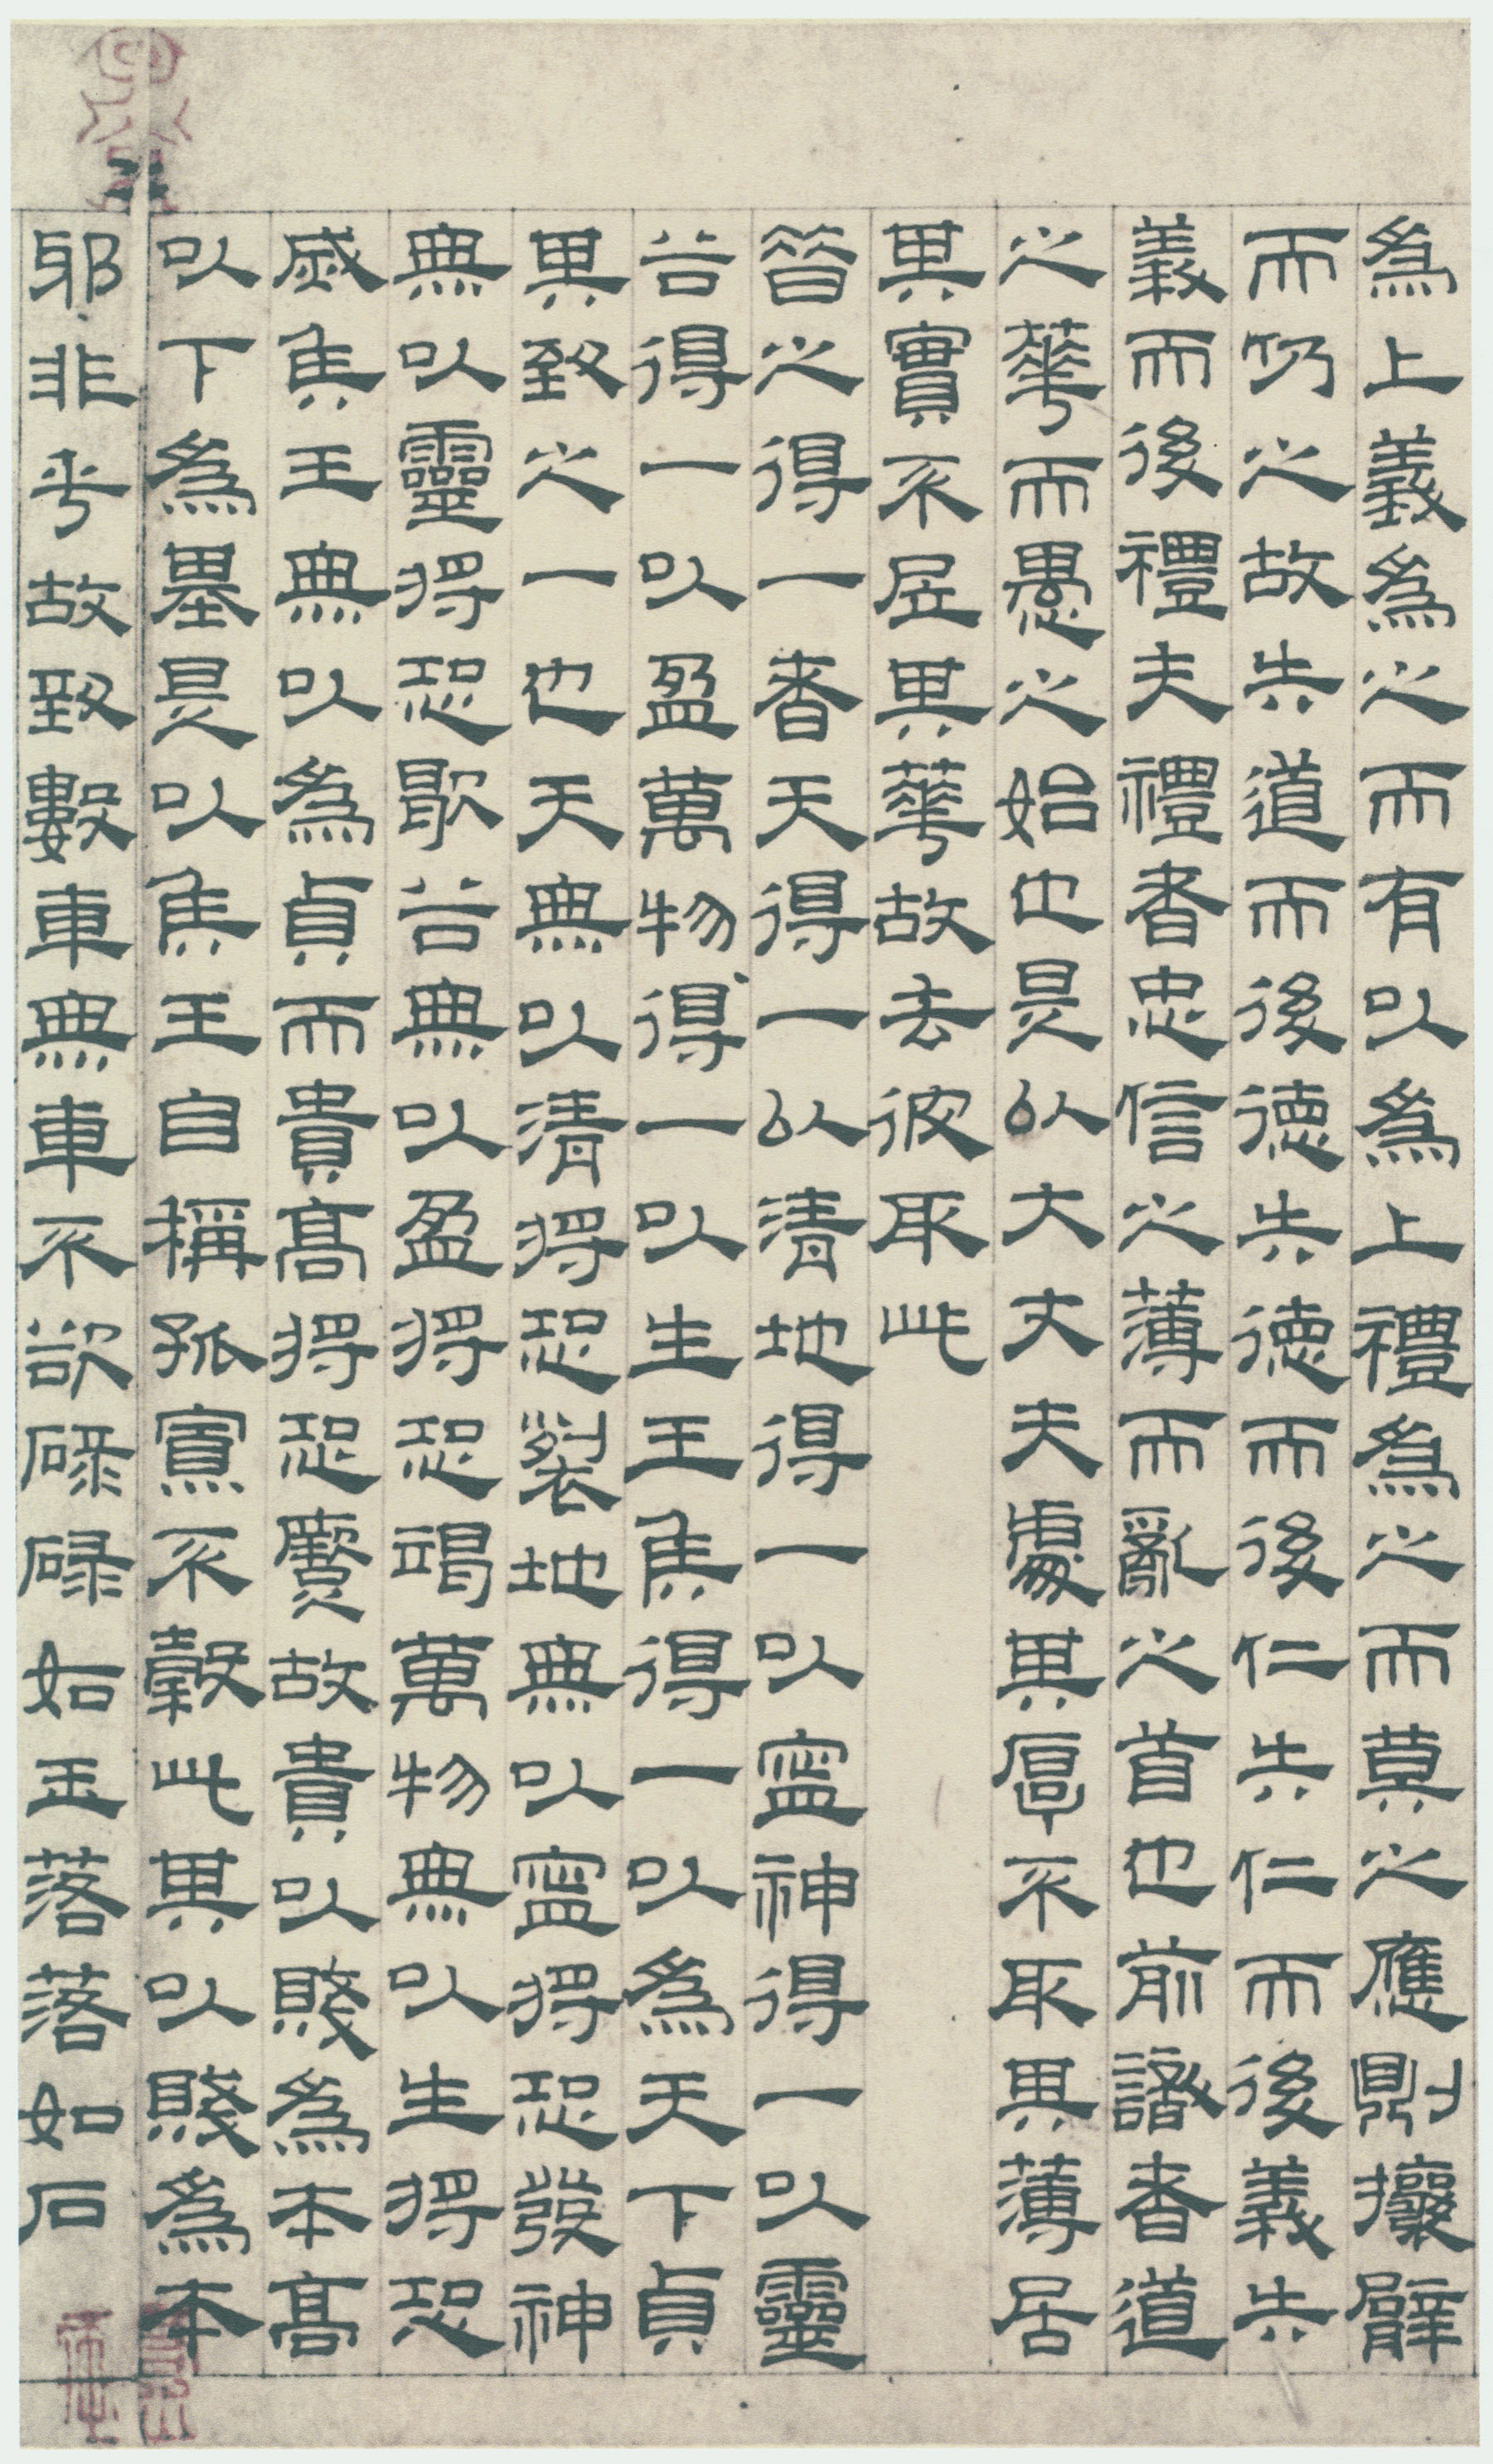 為上義為之而有以為上禮為之而莫之應則攘臂
而仍之故失道而後德失德而後仁失仁而後義失
義而後禮夫禮者忠信之薄而亂之首也前識者道
之華而愚之始也是以大丈夫處其厚不取其薄居
其實不居其華故去彼取此
昔之得一者天得一以清地得一以寧神得一以靈
谷得一以盈萬物得一以生王侯得一以為天下貞
其致之一也天無以清將恐裂地無以寧將恐發神
無以靈將恐歇谷無以盈將恐竭萬物無以生將恐
烕侯王無以為貞而貴高將恐蹷故貴以賤為本高
以下為基是以侯王自稱孤寡不穀此其以賤為本
邪非乎故致數車無車不欲碌碌如玉落落如石